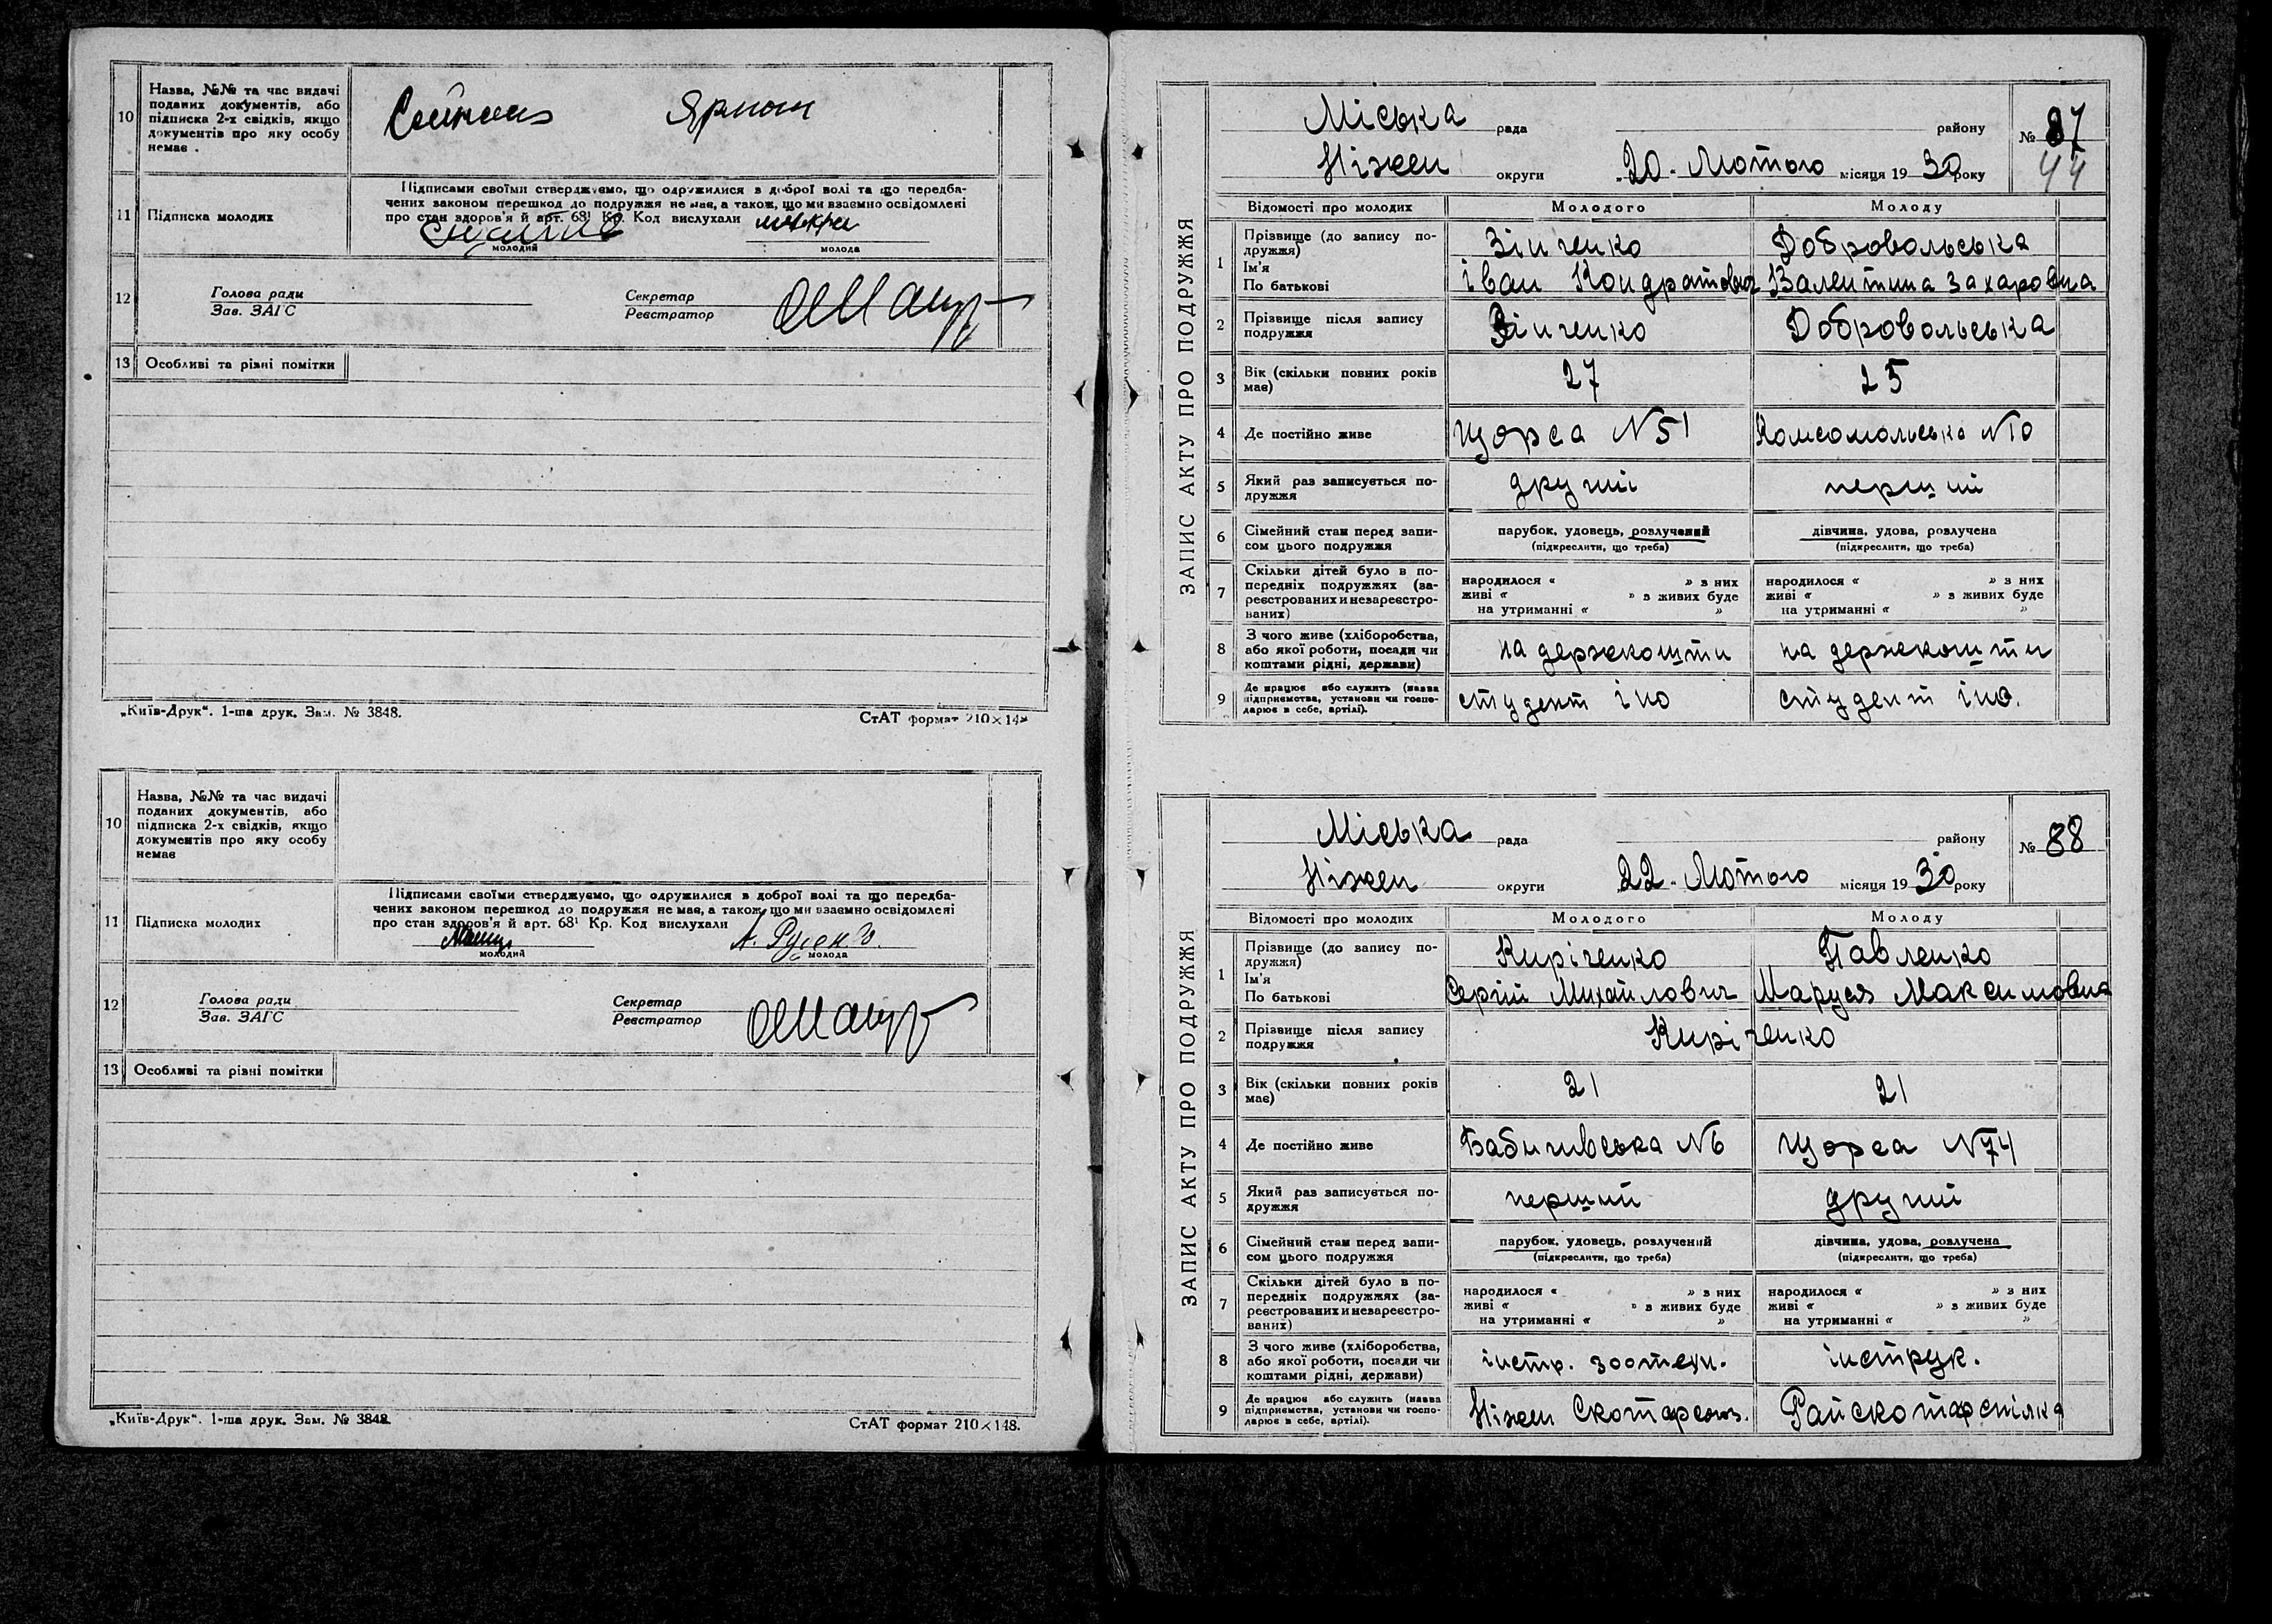 10
Назва, №№ та час видачі
поданих документів, або
підписка 2-х свідків, якщо
документів про яку особу
немає .
11
Підписка молодих
Підписами своїми стверджуємо, що одружилися в доброї волі та що передба-
чених законом перешкод до подружжя не має, а також, що ми взаємно освідомлені
про стан здоров'я й арт. 68¹ Кр. Код вислухали
молодий
молода
12
Голова ради
Зав. ЗАГС
Секретар
Реєстратор
13
Особливі та різні помітки
„Київ-Друк“. 1-ша друк. Зам. № 3848.
СтАТ формат 210×148
10
Назва, №№ та час видачі
поданих документів, або
підписка 2-х свідків, якщо
документів про яку особу
немає
11
Підписка молодих
Підписами своїми стверджуємо, що одружилися в доброї волі та що передба-
чених законом перешкод до подружжя не має, а також, що ми взаємно освідомлені
про стан здоров'я й арт. 68¹ Кр. Код вислухали
молодий
молода
12
Голова ради
Зав. ЗАГС
Секретар
Реєстратор
13
Особливі та різні помітки
„Київ-Друк“. 1-ша друк. Зам. № 3848.
СтАТ формат 210×148.
ЗАПИС АКТУ ПРО ПОДРУЖЖЯ
Міська рада району № 87
44
Ніжен округи „20. Лютого місяця 1930 року
Відомості про молодих Молодого Молоду
1
Прізвище (до запису по-
дружжя)
Ім'я
По батькові
Зінченко Добровольська
Іван Кондратович Валентина Захаровна
2
Прізвище після запису
подружжя
Зінченко Добровольська
3
Вік (скільки повних років
має)
27 25
4
Де постійно живе
Щорса N51 Комсомольська N10
5
Який раз записується по-
дружжя
другий перший
6
Сімейний стан перед запи-
сом цього подружжя
парубок, удовець, розлучений дівчина, удова, розлучена
(підкреслити, що треба) (підкреслити, що треба)
7
Скільки дітей було в по-
передніх подружжях (за-
реєстрованих и незареєстро-
ваних)
народилося « » з них народилося « » з них
живі « » з живих буде живі « » з живих буде
на утриманні « » на утриманні « »
8
З чого живе (хліборобства,
або якої роботи, посади чи
коштами рідні, держави)
на держкошти на держкошти
9
Де працює або служить (назва
підприємства, установи чи госпо-
дарює в себе, артілі).
студент іно студент іно.
ЗАПИС АКТУ ПРО ПОДРУЖЖЯ
Міська рада району № 88
Ніжен округи 22. Лютого місяця 1930 року
Відомості про молодих Молодого Молоду
1
Прізвище (до запису по-
дружжя)
Ім'я
По батькові
Кириченко Павленко
Сергій Михайлович Маруся Максимовна
2
Прізвище після запису
подружжя
Киріченко
3
Вік (скільки повних років
має)
21 21
4
Де постійно живе
Бабичивська N6 Щорса N74
5
Який раз записується по-
дружжя
перший другий
6
Сімейний стан перед запи-
сом цього подружжя
парубок, удовець, розлучений дівчина, удова, розлучена
(підкреслити, що треба) (підкреслити, що треба)
7
Скільки дітей було в по-
передніх подружжях (за-
реєстрованих и незареєстро-
ваних)
народилося « » з них народилося « » з них
живі « » з живих буде живі « » з живих буде
на утриманні « » на утриманні « »
8
З чого живе (хліборобства,
або якої роботи, посади чи
коштами рідні, держави)
інстр. зоотехн. інструк.
9
Де працює або служить (назва
підприємства, установи чи госпо-
дарює в себе, артілі).
Ніжен Скотарсоюз. Райскотарспілка